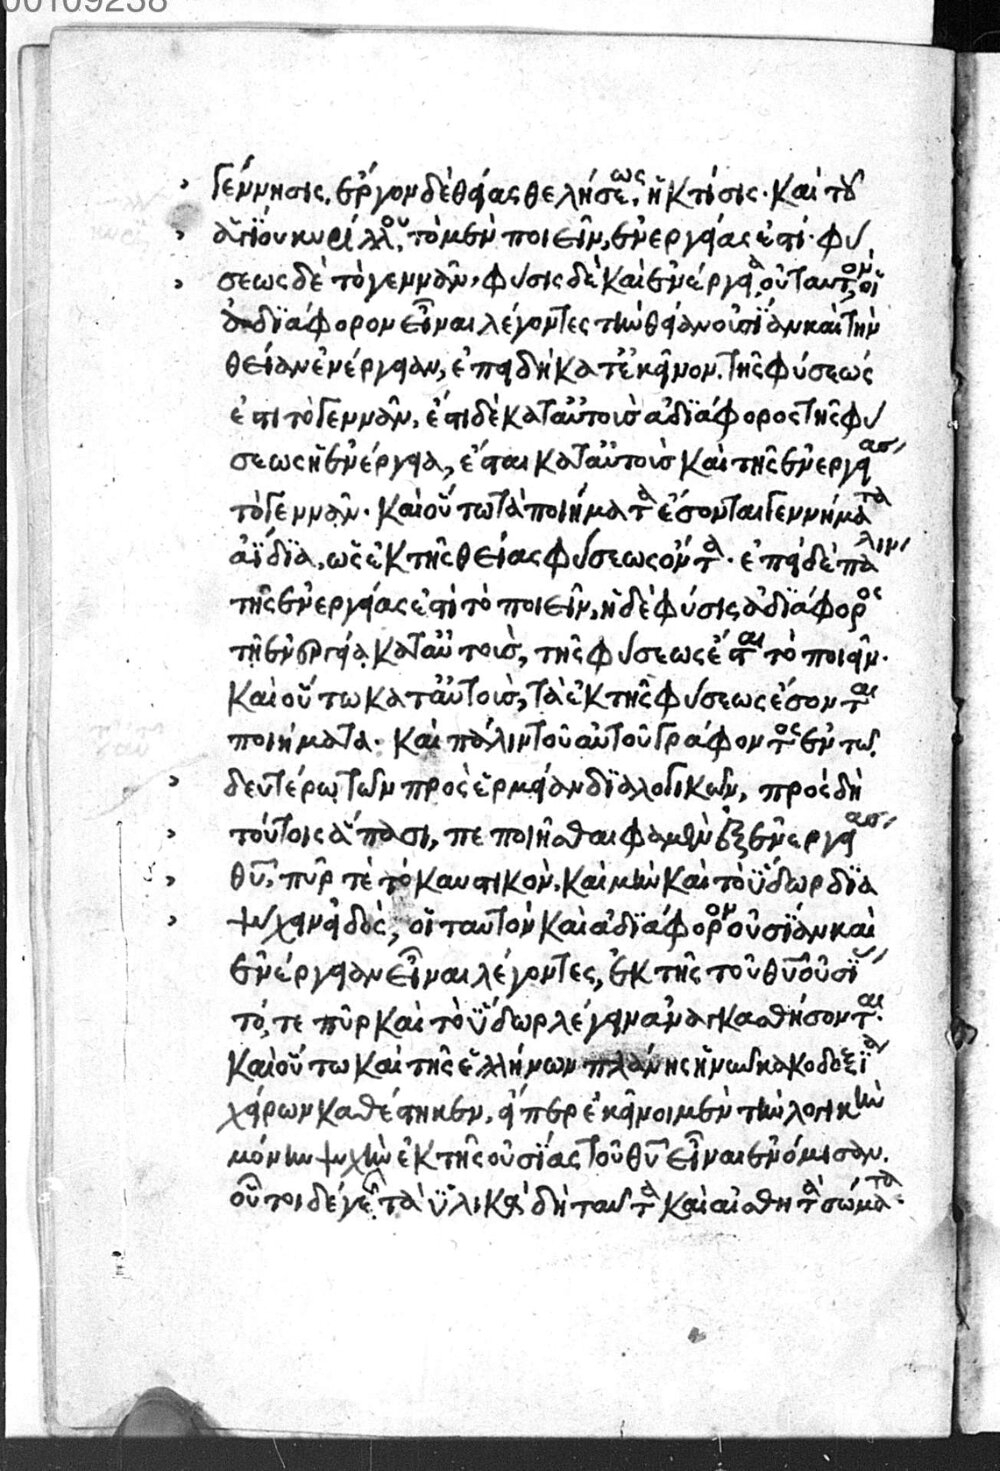 00109238
γέννησις, ἔργον δὲ θείας θελήσεως, ἡ κτίσις· καὶ τοῦ
ἁγίου κυρίλλου, τὸ μὲν ποιεῖν, ἐνεργείας ἐστί· φύ
σεως δὲ τὸ γεννᾶν, φύσις δὲ καὶ ἐνέργεια, οὐ ταυτόν, οἱ
ἀδϊάφορον εἶναι λέγοντες τὴν θείαν οὐσίαν καὶ τὴν
θείαν ἐνέργειαν, ἐπειδὴ κατ' ἐκεῖνον, τῆς φύσεώς
ἐστι τὸ γεννᾶν, ἔστι δὲ κατ' αὐτοὺς ἀδϊάφορος τῆς φύ
σεως ἡ ἐνέργεια, ἔσται κατ' αὐτοὺς καὶ τῆς ἐνεργείας
τὸ γεννᾶν· καὶ οὕτω τὰ ποιήματα ἔσονται γεννήματα
ἀΐδϊα, ὡς ἐκ τῆς θείας φύσεως ὄντα· ἐπεὶ δὲ πάλιν
τῆς ἐνεργείας ἐστὶ τὸ ποιεῖν, ἡ δὲ φύσις ἀδϊάφορος
τῇ ἐνεργείᾳ κατ' αὐτοὺς, τῆς φύσεως ἔσται τὸ ποιεῖν·
καὶ οὕτω κατ' αὐτοὺς, τὰ ἐκ τῆς φύσεως ἔσονται
ποιήματα· καὶ πάλιν τοῦ αὐτοῦ γράφοντος ἐν τῷ
δευτέρῳ τῶν πρὸς ἑρμείαν δϊαλογικῶν, πρὸς δὴ
τούτοις ἅπασι, πεποιῆσθαι φαμὲν ἐξ ἐνεργείας
θῦ, πῦρ τὲ τὸ καυστικὸν, καὶ μὴν καὶ τὸ ὕδωρ δϊὰ
ψύχειν εἰδὸς, οἱ ταυτὸν καὶ ἀδϊάφορον οὐσίαν καὶ
ἐνέργειαν εἶναι λέγοντες, ἐκ τῆς τοῦ θῦ οὐσί
τό, τε πῦρ καὶ τὸ ὕδωρ λέγειν ἀναγκασθήσονται·
καὶ οὕτω καὶ τῆς ἑλλήνων πλάνης ἡ νῦν κακοδοξία
χείρων καθέστηκεν, εἴπερ ἐκεῖνοι μὲν τὴν λογικὴν
μόνην ψυχὴν ἐκ τῆς οὐσίας τοῦ θῦ εἶναι ἐνόμισαν.
οὗτοι δέ γε τὰ ὑλικὰ δὴ ταῦτα καὶ αἰσθητὰ σώματα·